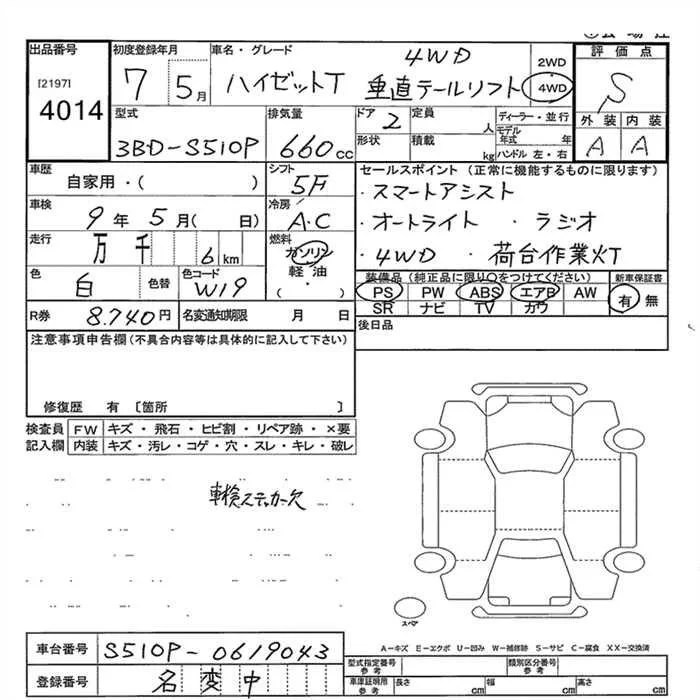 出品番号 初度登録年月 車名・グレード 評価点
[2197] 4014
7 5月 ハイゼットT 4WD 垂直テールリフト 2WD 4WD S
型式 排気量 ドア 定員 ディーラー・並行 外装 内装
3BD-S510P 660cc 2 人 モデル年式 年 A A
形状 積載 kg ハンドル 左・右
車歴 シフト セールスポイント(正常に機能するものに限ります)
自家用・( ) 5F ・スマートアシスト
車検 9年 5月( 日) 冷房 A.C ・オートライト ・ラジオ
走行 万 千 6 km 燃料 ガソリン 軽油 ・( ) ・4WD ・荷台作業灯
色 白 色替 色コード W19 装備品(純正品に限り○をつけてください) 新車保証書
PS PW ABS エアB AW 有 無
SR ナビ TV カワ
R券 8,740円 名変通知期限 月 日 後日品
注意事項申告欄(不具合内容等は具体的に記入して下さい)
修復歴 有 〔箇所 〕
検査員 FW キズ・飛石・ヒビ割・リペア跡・×要
記入欄 内装 キズ・汚レ・コゲ・穴・スレ・キレ・破レ
車検ステッカー欠
スペア
A-キズ E-エクボ U-凹み W-補修跡 S-サビ C-腐食 XX-交換済
車台番号 S510P-0619043 型式指定番号 類別区分番号
登録番号 名変中 車庫証明用参考 長さ cm 幅 cm 高さ cm